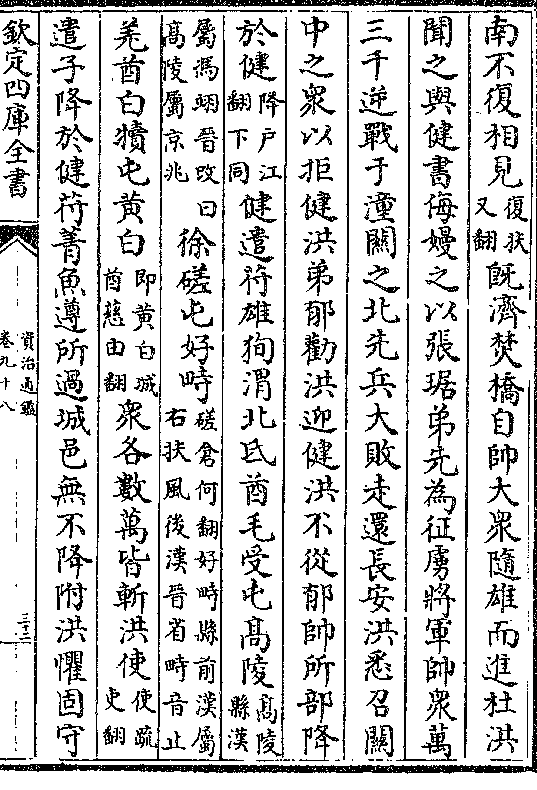 南不復相見復扶又翻既濟焚橋自帥大衆隨雄而進杜洪
聞之與健書侮嫚之以張琚弟先為征虜將軍帥衆萬
三千逆戰于潼關之北先兵大敗走還長安洪悉召關
中之衆以拒健洪弟郁勸洪迎健洪不從郁帥所部降
於健降户江翻下同健遣苻雄徇渭北氐酋毛受屯髙陵髙陵縣漢
屬馮翊晉改曰髙陵屬京兆徐磋屯好畤磋倉何翻好畤縣前漢屬右扶風後漢晉省畤音止
羌酋白犢屯黄白即黄白城酋慈由翻衆各數萬皆斬洪使使疏吏翻
遣子降於健苻菁魚遵所過城邑無不降附洪懼固守
欽定四庫全書
資治通鑑
卷九十八
三十二